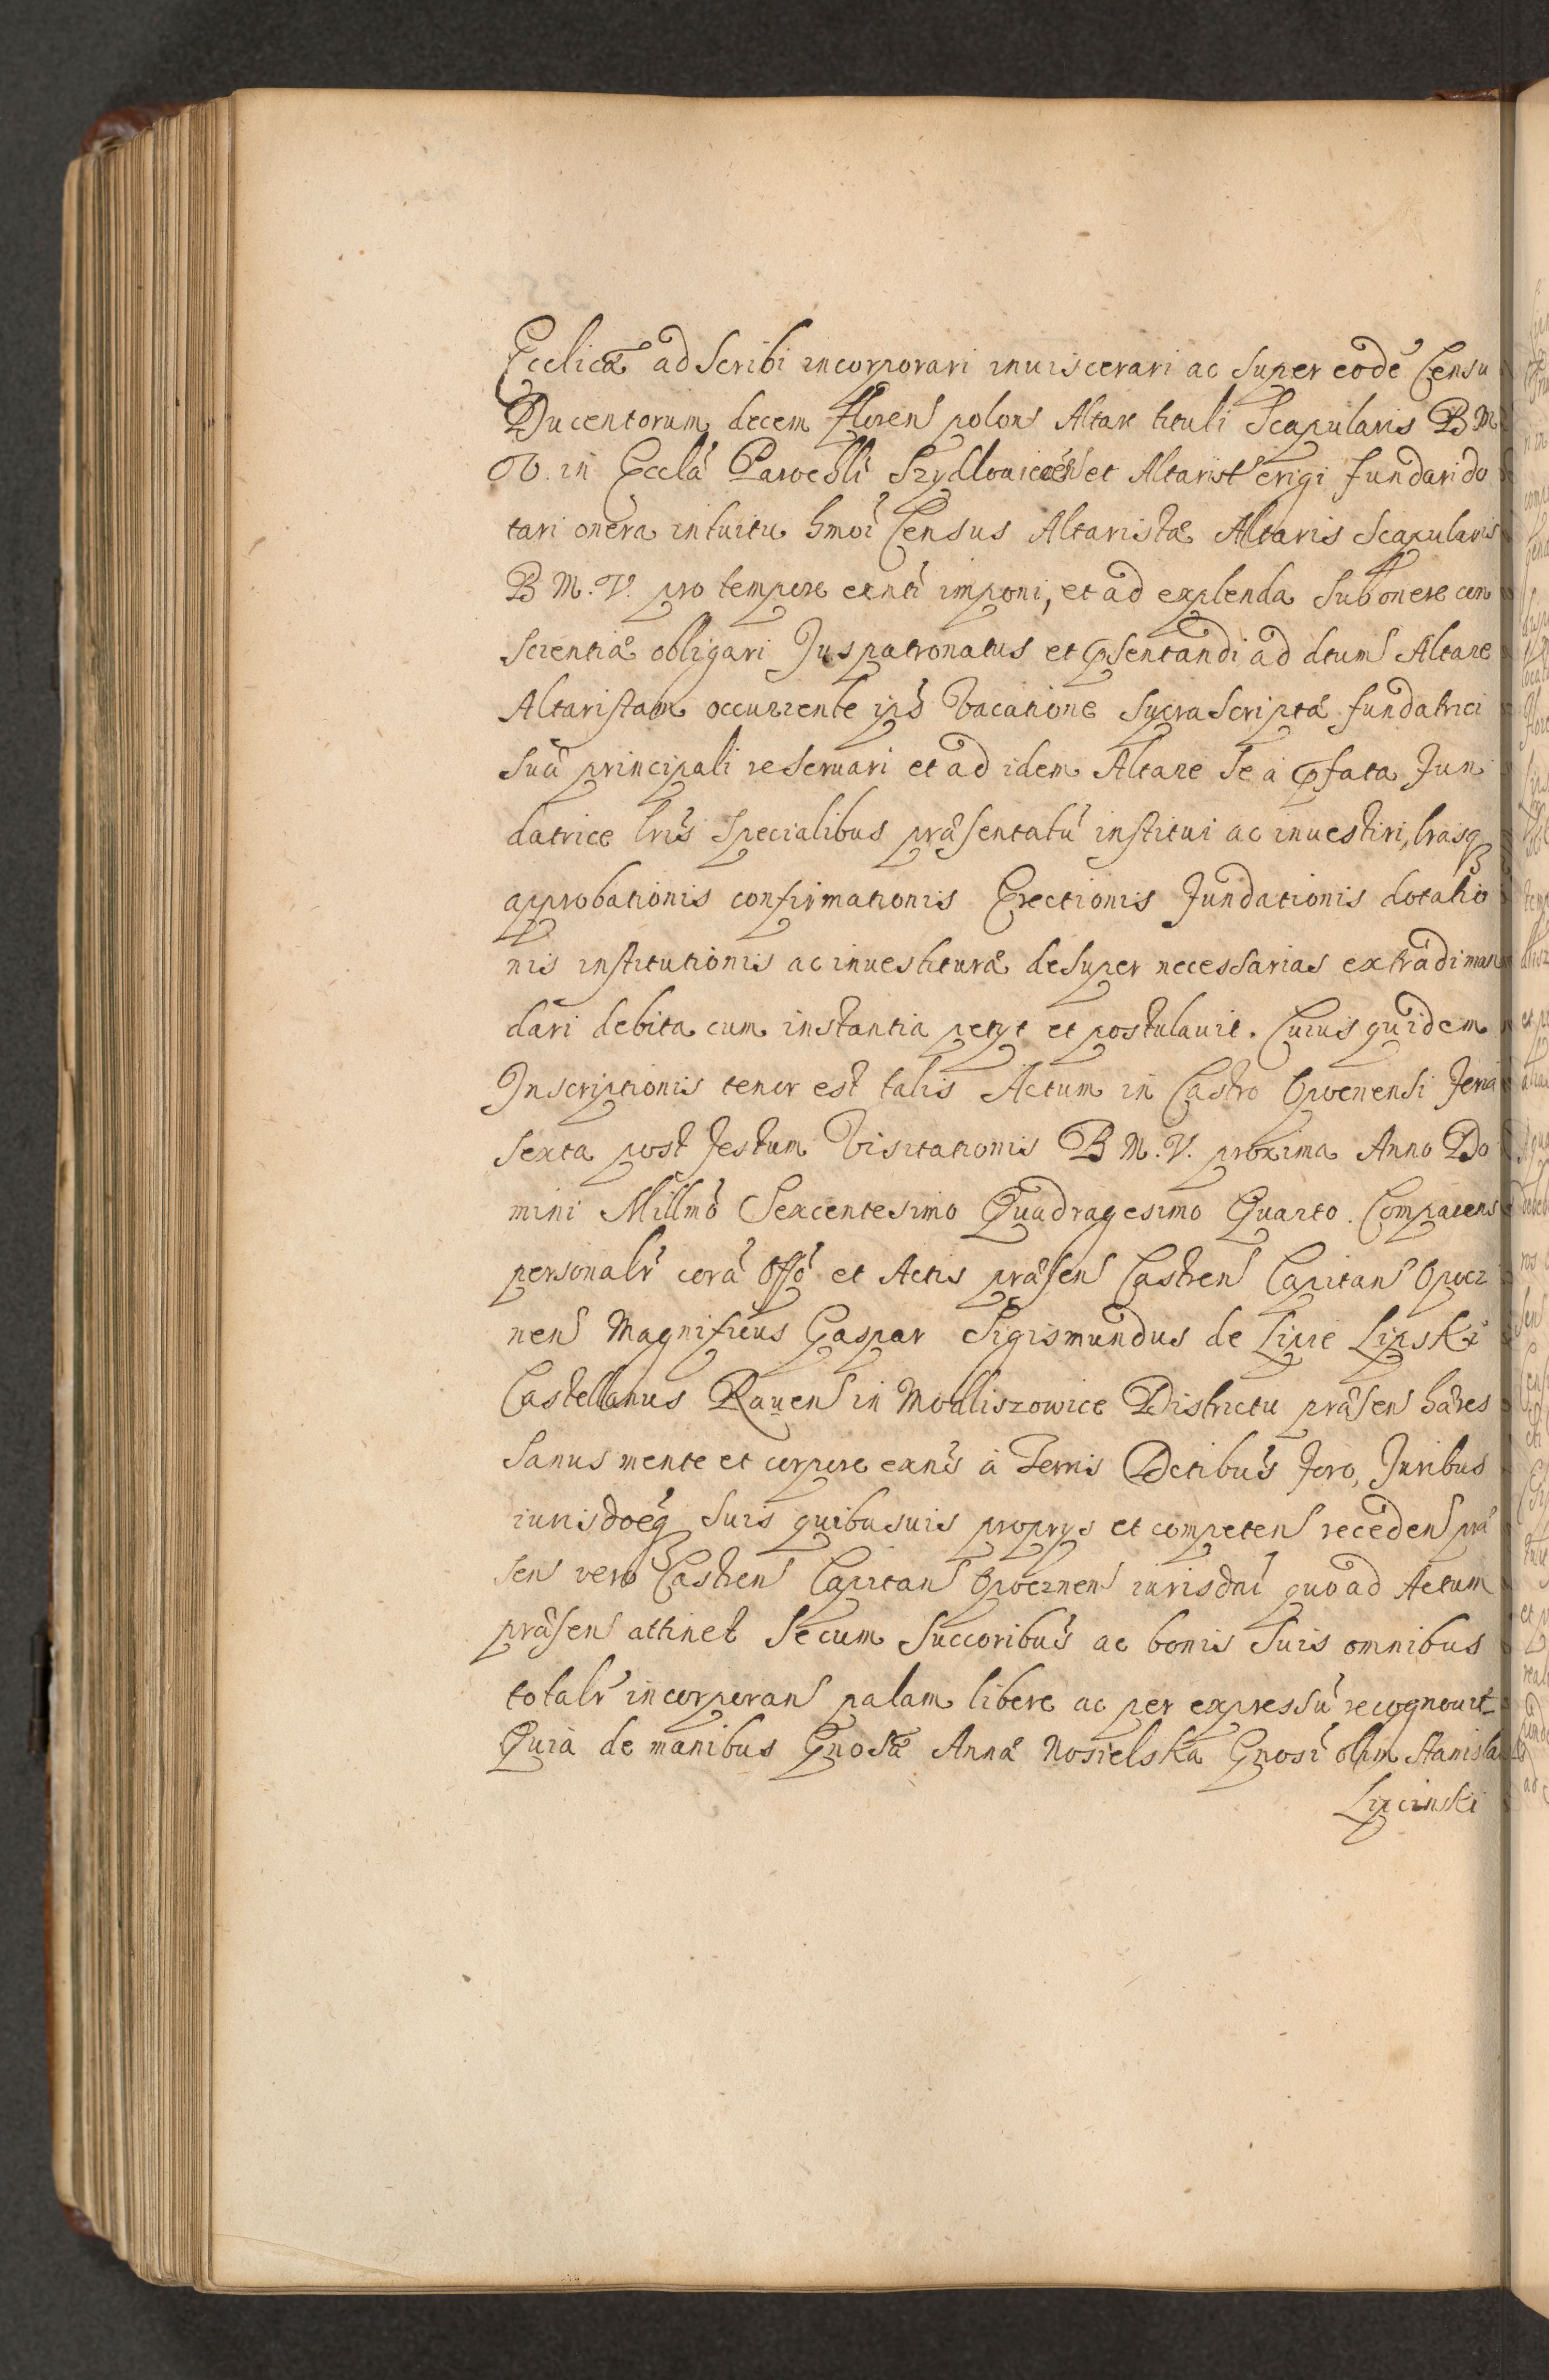 Ecclicæ adscribi incorporari inuiscerari ac super eodē Censu
Ducentorum decem floren polon Altare tituli Scapularis B M
V. in Ecclā Parochli Szydlouicen et Altarist erigi fundari do
tari onera intuitu hmōi Census Altaristæ Altaris Scapularis
B M. V. pro tempore exnti imponi, et ad explenda sub onere con
scientiæ obligari Juspatronatus et pñsentandi ad dtum Altare
Altaristam occurrente ips Vacatione suprascriptæ fundatrici
suæ principali reseruari et ad idem Altare se à præfata Fun
datrice lris specialibus præsentatū institui ac inuestiri, lrasq
approbationis confirmationis Erectionis Fundationis dotatio
nis institutionis ac inuestituræ desuper necessarias extradi man
dari debita cum instantia petyt et postulauit. Cuius quidem
Inscriptionis tenor est talis Actum in Castro Opocnensi feria
sexta post festum Visitationis B M. V. proxima Anno Do
mini Millmō Sexcentesimo Quadragesimo Quarto. Comparens
personalr corā Offō et Actis præsen Castren Capitan Opocz
nen Magnificus Gaspar Sigismundus de Lipie Lipski
Castellanus Rauen in Modliszowice Districtu præsen hæres
sanus mente et corpore exnis à Terris Dctibus foro, Juribus
iurisdoēq suis quibusuis proprys et competen receden præ
sen vero Castren Capitan Opocznen iurisdni quoad Actum
præsen attinet se cum succoribus ac bonis suis omnibus
totalr incorporan palam libere ac per expressū recognouit
Quia de manibus Gnosæ Annæ Nosielska Gnosi olim Stanislai
Lipcinski